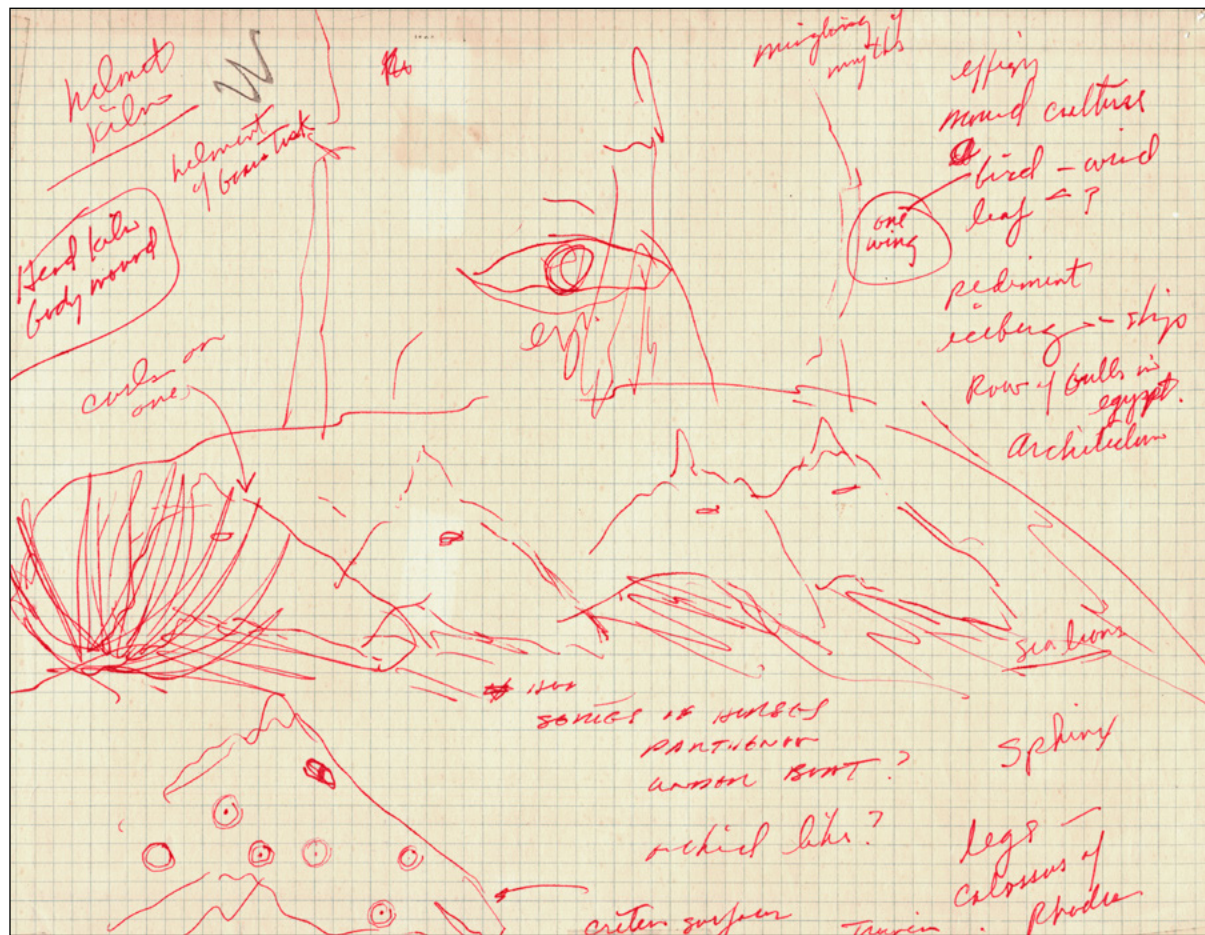 helmet
kiln
helment
of
Head kiln
body mound
curls on
one
mingling of
myths
effigy
mound culture
bird - wind
leaf - ?
one
wing
pediment
iceberg - ship
Row of bulls in
egypt.
Architecture
eye
sea lions
SERIES OF HORSES
PARTHENON
UNDER BOAT ?
Sphinx
orchid like ?
Legs -
Colossus of
Rhodes
surface